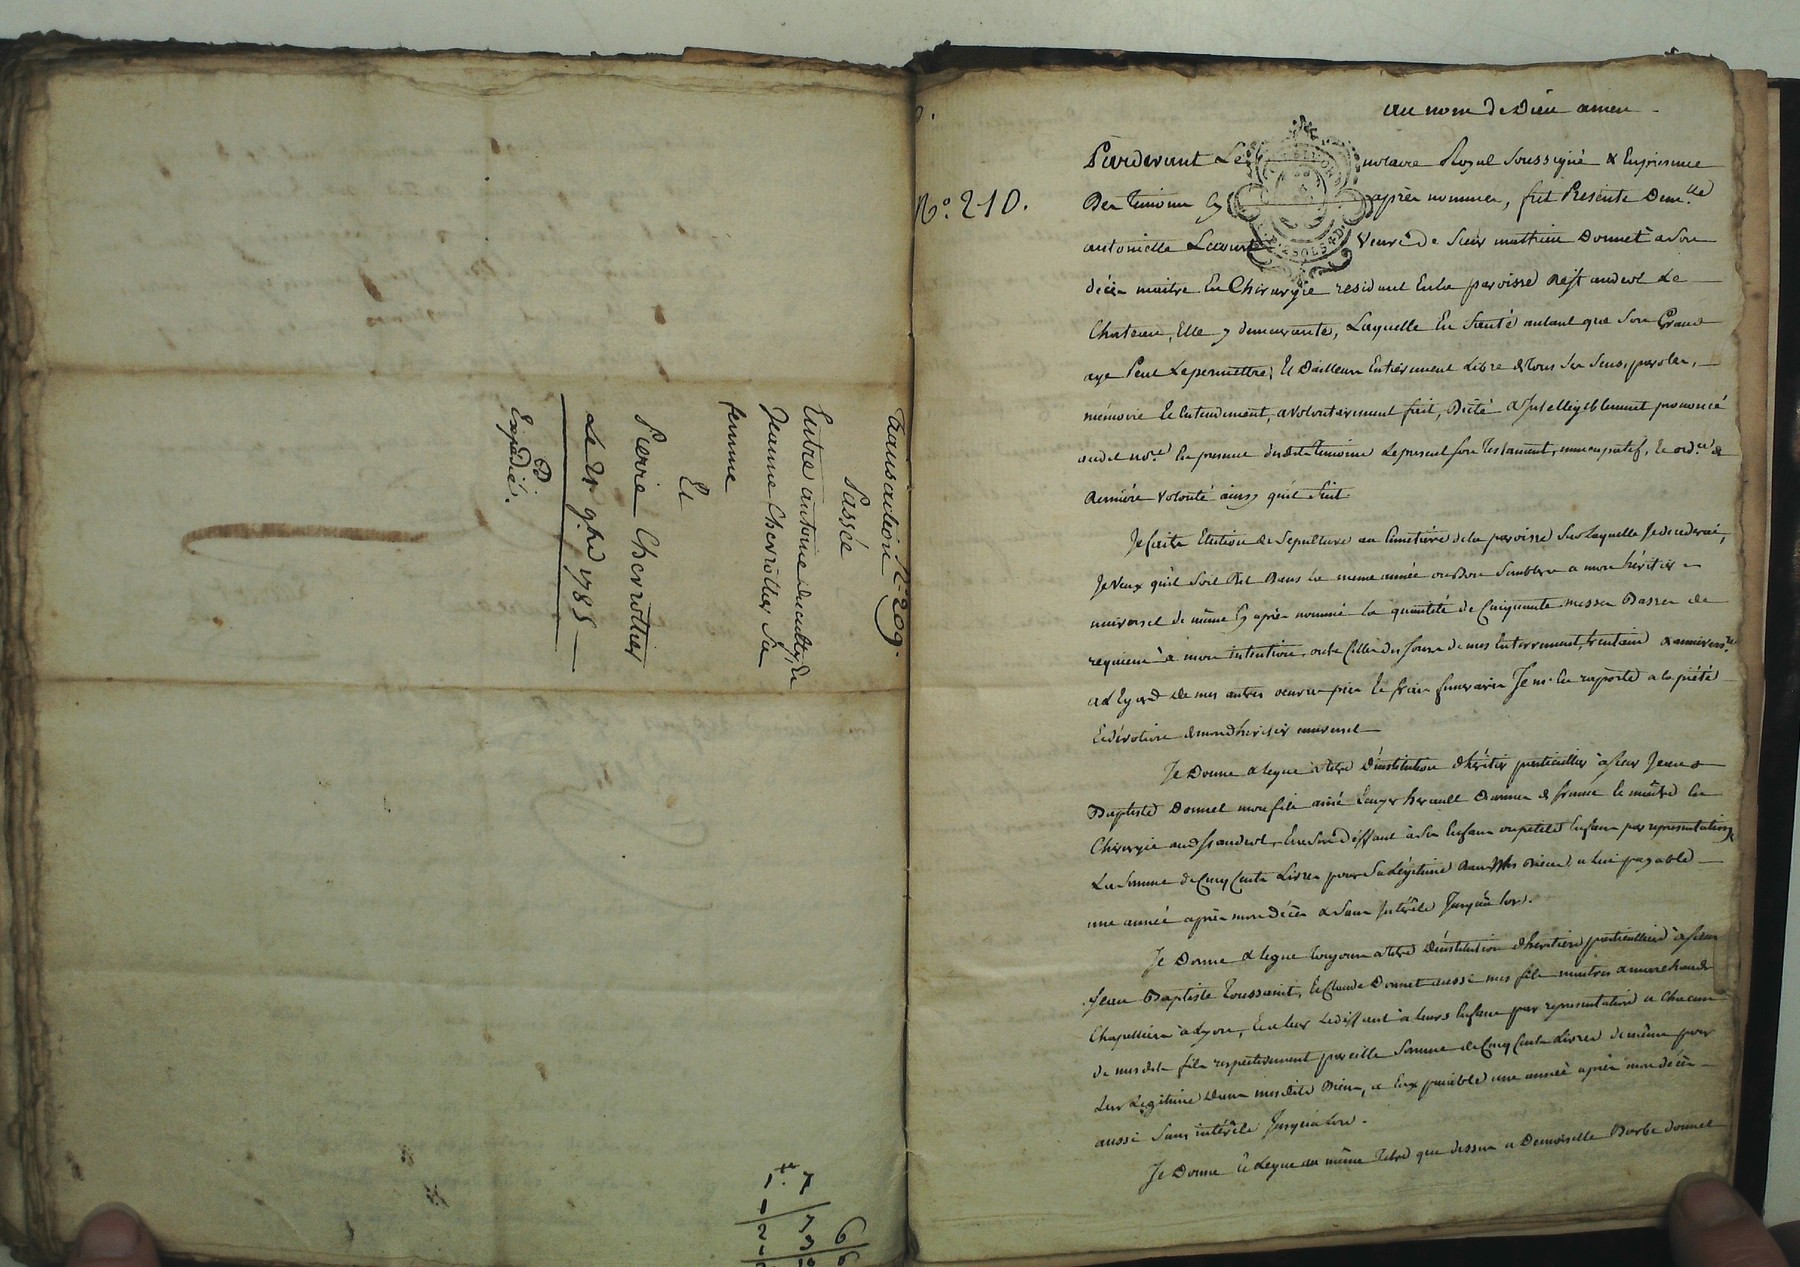 Transaction N.° 209.
Passée
Entre antoine
Jeanne Cherrottier Sa
femme
Et
Pierre Cherrottier
Le 25 9bre 1785
Expédié.
1re 7
N.° 210.
au nom de Dieu amen
Pardevant Le notaire Royal Soussigné & En presence
Des temoins cy après nommés, fut Presente Demlle
antoinette Veuve de Sieur mathieu Donnet a Son
décès maitre En Chirurgie residant En la paroisse de St andeol Le
Chateau, Elle y demeurante, Laquelle En Santé autant que Son Grand
age Peut Le permettre, Et Dailleurs Entierement Libre de tous Ses Sens, paroles,
mémoire Et Entendement, a Volontairement fait, Dicté & Inteligiblement prononcé
audit nore En presence desdits temoins Le present Son testament nuncupatif, Et ordce de
derniere Volonté ainsy qu'il Suit
Je faits Election de Sepulture au Cimetière de la paroisse Sur Laquelle Je decederai,
Je Veux qu'il Soit Dit Dans la meme année ou Bon Semblera a mon héritier
universel de même cy après nommé la quantité de Cinquante messes Basses de
requiem à mon intention, outre Celles des Jours de mes Enterrement, trentain & annivers.re
a L'Egard de mes autres oeuvres pies Et frais funeraires Je m'en raporte a la piété
Et dévotion de mondit heritier universel
Je Donne & legue a titre D'institution d'héritier particulier à Sieur Jean
Baptiste Donnet mon fils ainé herault D'armes de france Et maitre En
Chirurgie audit St andeol, Et a Son déffaut à Ses Enfans ou petits Enfans par representation
La Somme de Cinq Cents Livres pour Sa Légitime Dans Mes Biens, a lui payable
une année après mon décès & Sans Intérêts Jusqu'a lors.
Je Donne & legue toujours a titre D'institution d'heritiers particulliers à Sieurs
Jean Baptiste toussaint, Et Claude Donnet aussi mes fils maitres & marchands
Chapelliers à Lyon, Et a leur deffaut à leurs Enfans par representation a Chacun
de mesdits fils respectivement pareille Somme de Cinq Cents Livres de même pour
Leur Legitime Dans mesdits Biens, a Eux paiable une année après mon décès
aussi Sans intérêts Jusqu'a lors.
Je Donne Et Legue au même titre que dessus a Demoiselle Barbe Donnet